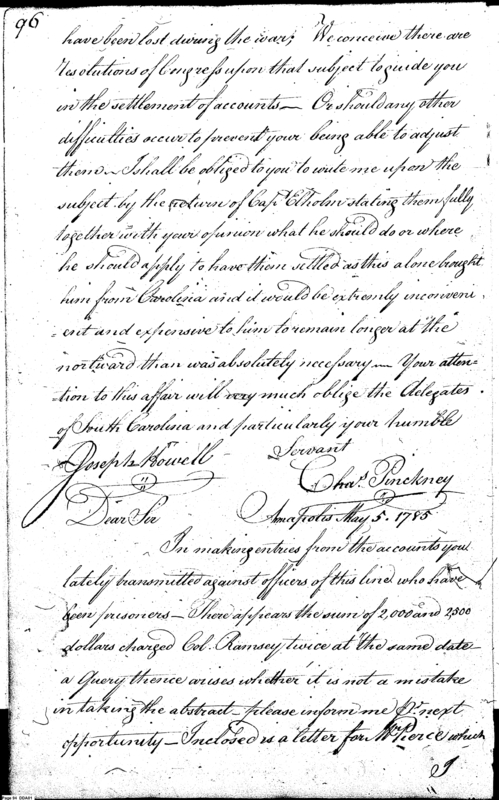 96
have been lost during the war; We conceive there are
resolutions of Congress upon that subject to guide you
in the settlement of accounts — Or should any other
difficulties occur to prevent your being able to adjust
them — I shall be obliged to you to write me upon the
subject by the return of Capt. Elholm stating them fully
together with your opinion what he should do or where
he should apply to have them settled as this alone brought
him from Carolina and it would be extremly inconveni
-ent and expensive to him to remain longer at the
nortward than was absolutely necessary — Your atten-
-tion to this affair will very much oblige the Delegates
of South Carolina and particularly your humble
Servant
Joseph Howell
Chas. Pinckney
Dear Sir
Annapolis May 5. 1785
In making entries from the accounts you
lately transmitted against officers of this line who have
been prisoners — There appears the sum of 2,000 and 2,500
dollars charged Col. Ramsey twice at the same date
a Query thence arises whether it is not a mistake
in taking the abstract — please inform me pr. next
opportunity — Inclosed is a letter for Mr. Pierce which
I
Page 96